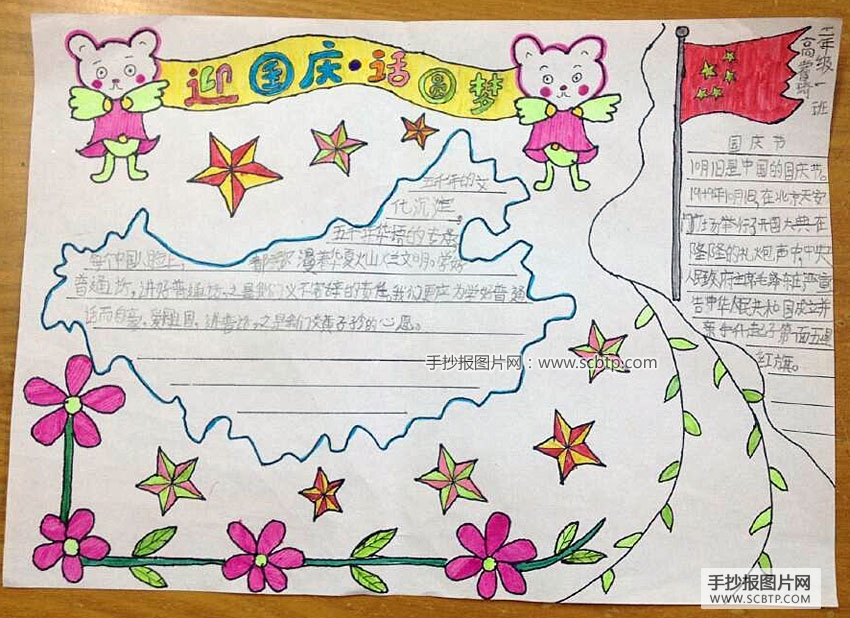 迎国庆·话圆梦
二年级一班
国庆节
10月1日是中国的国庆节。
1949年10月1日,在北京天安
门广场举行开国大典,在
隆隆的礼炮声中,中央
人民政府主席毛泽东庄严宣
告中华人民共和国成立并
亲手升起了第一面五星
红旗。
五千年的文
化沉淀
五千年华语的
每个中国人脸上,
普通话,讲好普通话是我们义不容辞的责任,我们更应为学好普通
话而自豪,爱祖国,讲普话,是我们炎黄子孙的心愿。
手抄报图片网:www.scbtp.com
手抄报图片网
WWW.SCBTP.COM